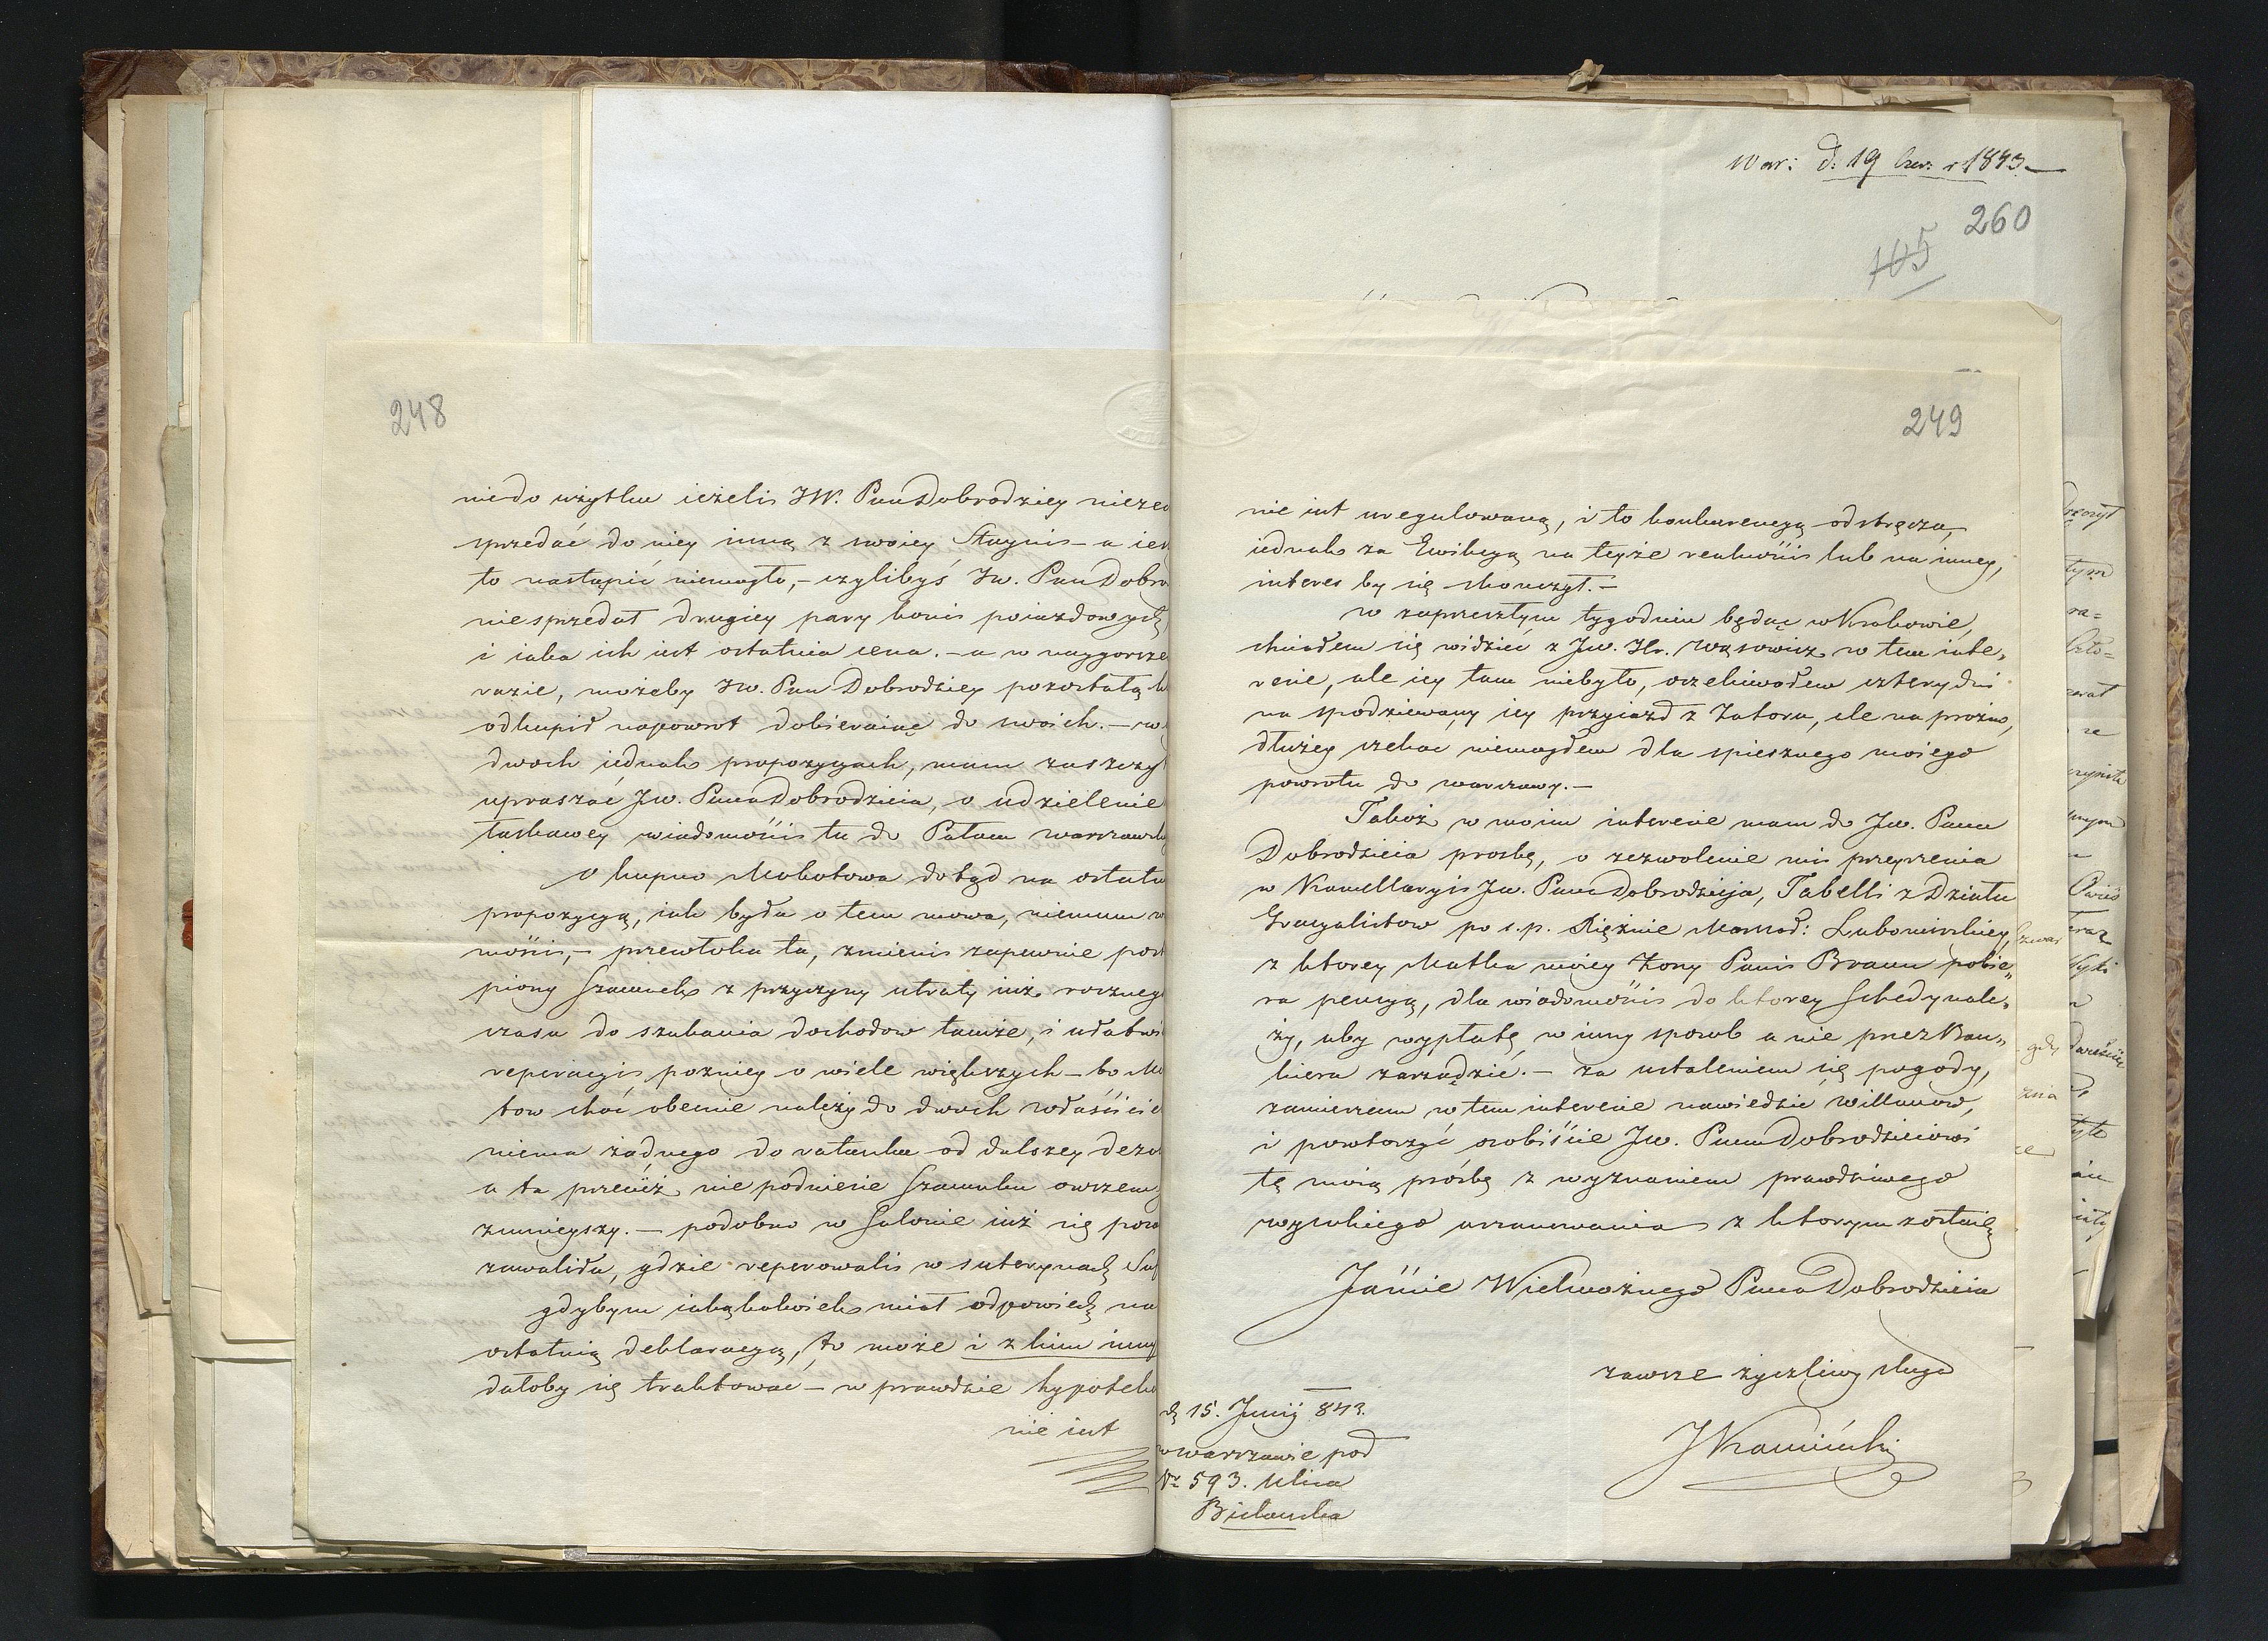 248
niedo użytku ieżeli JW. Pan Dobrodziey
sprzedać do niey inną z swoiey Stayni – a
to nastąpić niemogło, – czylibyś Jw. Pan
niesprzedał drugiey pary koni poiazdowych
i iaka ich iest ostatnia cena. – a w naygorsze
razie, możeby Jw. Pan Dobrodziey pozostałą
odkupił napowrot dobieraiąc do swoich. –
dwoch iednak propozycyach, mam
upraszać Jw. Pana Dobrodzieia, o udzielenie
łaskawey wiadomości tu do Pałacu
O kupno Mokotowa dotąd na
propozycyą, iak była o tem mowa, niemam
mości, – przewłoka ta, zmieni zapewnie
piony Szacunek z przyczyny utraty iuż
czasu do szukania dochodow tamże, i
reperacyi pozniey o wiele większych – bo
tow choć obecnie należy do dwoch
niema żadnego do ratunku od dalszey
a ta przecież nie podniesie Szacunku owszem
zmnieyszy. – podobno w Salonie iuż się
zawaliła, gdzie reperowali w suterynach
gdybym iakąkolwiek miał odpowiedź na
ostatnią deklaracyą, to może i z kim
dałoby się traktować – w prawdzie
nie iest
War: d: 19 Czer: r 1843
260
105
249
nie iest uregulowaną, i to konkurencyą odstręcza,
iednak za Ewikcyą na teyże realności lub na inney,
interes by się skonczył. –
w zaprzeszłym tygodniu będąc w Krakowie,
chciałem się widzieć z Jw. Hr. Wąsowicz w tem inte„
resie, ale iey tam niebyło, oczekiwałem cztery dni
na spodziewany iey przyiazd z Zatoru, ale na prożno,
dłużey czekać niemogłem dla spiesznego moiego
powrotu do warszawy. –
Takoż w moim interesie mam do Jw. Pana
Dobrodzieia prosbę, o zezwolenie mi przeyrzenia
w Kancellaryi Jw. Pana Dobrodzieja, Tabelli z Działu
Gracyalistow po s.p. Xiężnie Marsał: Lubomirskiey,
z ktorey Matka moiey żony Pani Braun pobie„
ra pensyą, dla wiadomości do ktorey Schedy nale„
ży, aby wypłatę w inny sposob a nie przez Ban„
kiera zarządzić. – za ustaleniem się pogody,
zamierzam w tem interesie nawiedzić Willanow,
i powtorzyć osobiście Jw. Panu Dobrodzieiowi
tę moią prośbę z wyznaniem prawdziwego
wysokiego uszanowania z ktorym zostaię
Jaśnie Wielmożnego Pana Dobrodzieia
zawsze życzliwy sługa
JKamiński
d 15. Junij 843.
w warszawie pod
Nr 593. Ulica
Bielanska